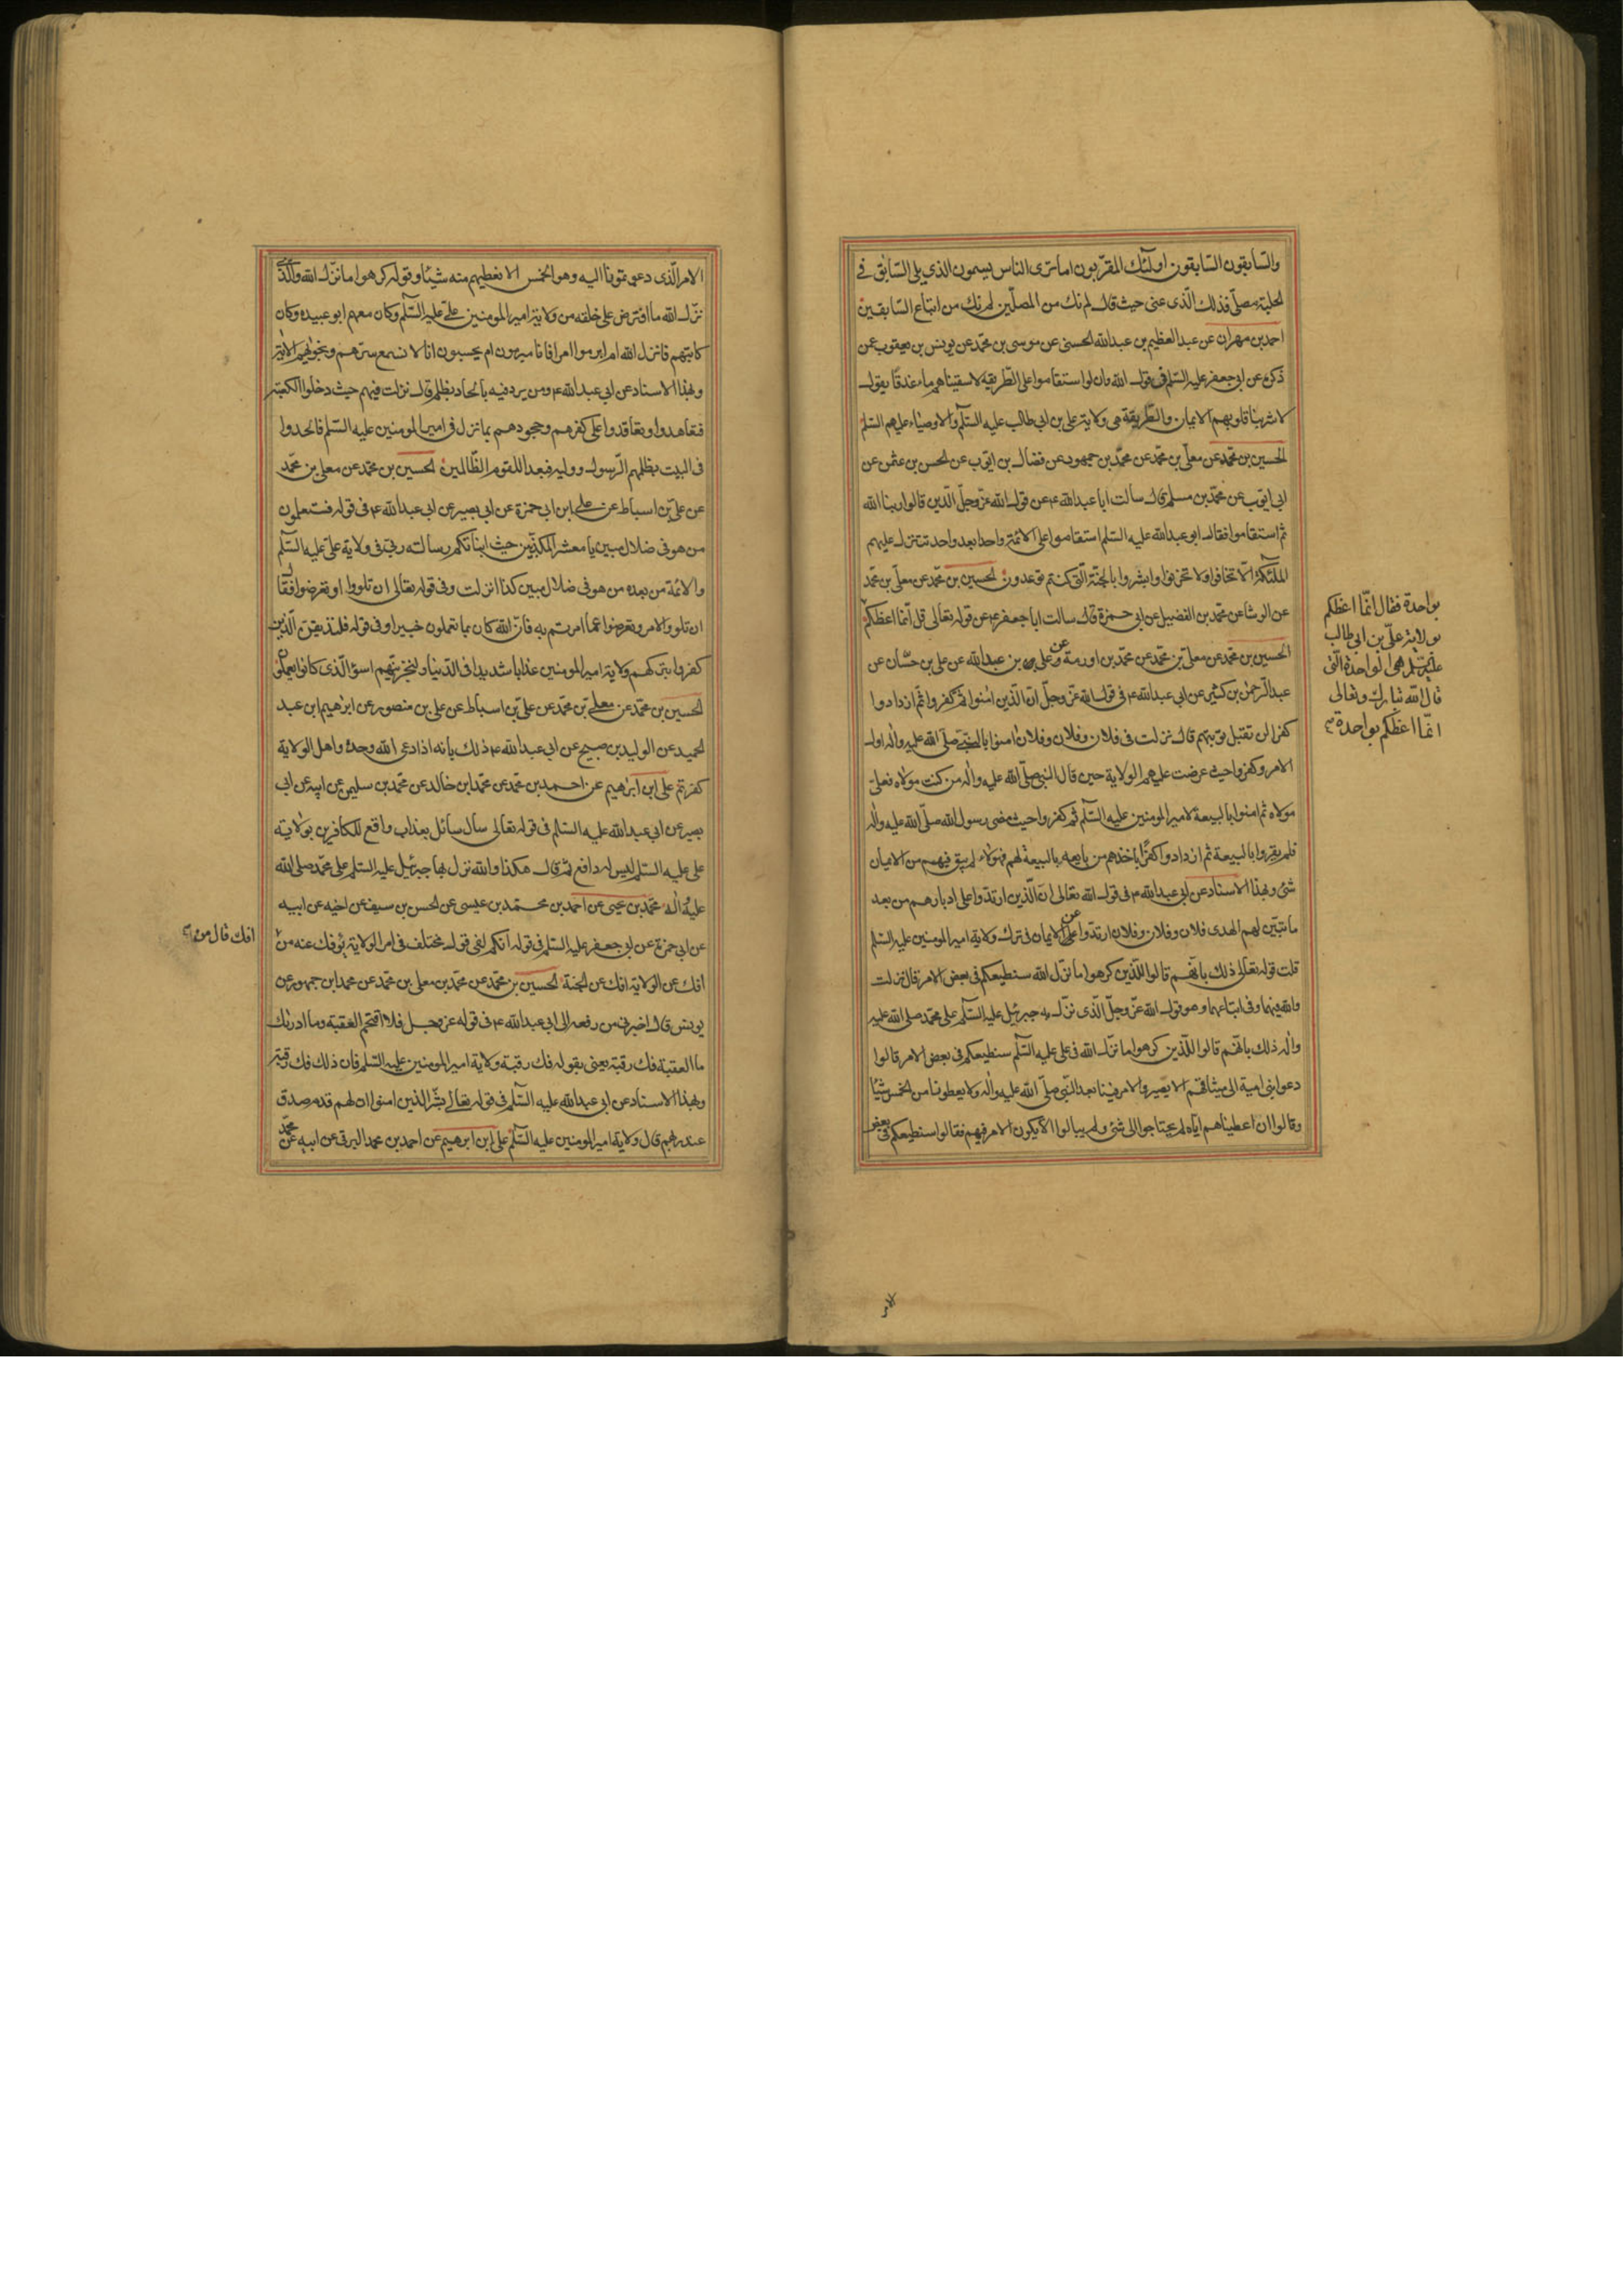 والسّابقون السّابقون اولٓئك المقرّبون اما ترى الناس يسمون الذي يلي السّابق في
الحلبة مصلّى فذلك الّذى عنى حيث قال لم نك من المصلّين لم نك من اتباع السّابقين
احمد بن مهران عن عبد العظيم بن عبد الله الحسنى عن موسى بن محمّد عن يونس بن يعقوب عمن
ذكره عن ابى جعفر عليه السّلم فى قول الله وان لو استقاموا على الطّريقه لاسقيناهم ماء غدقًا يقول
لاشربنا قلوبهم الايمان والطّريقة هى ولاية على بن ابى طالب عليه السّلم والاوصياء عليهم السّلم
الحسين بن محمّد عن معلّى بن محمّد عن محمّد بن جمهور عن فضالة بن ايّوب عن الحسن بن عثمن عن
ابى ايّوب عن محمّد بن مسلم قال سالت ابا عبد الله ع عن قول الله عزّ وجلّ الّذين قالوا ربنا الله
ثم استقاموا فقال ابو عبد الله عليه السّلم استقاموا على الائمّة واحدا بعد واحد تتنزل عليهم
الملئكة الّا تخافوا ولا تحزنوا وابشروا بالجنّة الّتى كنتم توعدون الحسين بن محمّد عن معلّى بن محمّد
عن الوشا عن محمّد بن الفضيل عن ابى حمزة قال سالت ابا جعفر ع عن قوله تعالى قل انّما اعظكم
بواحدة فقال انّما اعظكم
بولاية علىّ بن ابى طالب
عليه السّلم هى الواحدة الّتى
قال الله تبارك وتعالى
انّما اعظكم بواحدة
الحسين بن محمّد عن معلى بن محمّد عن محمّد بن اورمة وعلى بن عبد الله عن على بن حسّان عن
عبد الرّحمن بن كثير عن ابى عبد الله ع فى قول الله عزّ وجلّ انّ الّذين امنوا ثم كفروا ثم ازدادوا
كفرا لن تقبل توبتهم قال نزلت فى فلان وفلان وفلان امنوا بالنّبى صلّى الله عليه واله اول
الامر وكفروا حيث عرضت عليهم الولاية حين قال النبى صلّى الله عليه واله من كنت مولاه فعلىّ
مولاه ثم امنوا بالبيعة لامير المومنين عليه السّلم ثم كفروا حيث مضى رسول الله صلّى الله عليه واله
فلم يقروا بالبيعة ثم ازدادوا كفرًا باخذهم من بايعه بالبيعة لهم فهؤلاء لم يبق فيهم من الايمان
شئ وبهذا الاسناد عن ابى عبد الله ع فى قول الله تعالى ان الّذين ارتدّوا على ادبارهم من بعد
ما تبيّن لهم الهدى فلان وفلان وفلان ارتدّوا عن الايمان فى ترك ولاية امير المومنين عليه السّلم
قلت قوله تعالى ذلك بانّهم قالوا للّذين كرهوا ما نزّل الله سنطيعكم فى بعض الامر قال نزلت
والله فيهما وفى اتباعهما وهو قول الله عزّ وجلّ الّذى نزّل به جبرئيل عليه السّلم على محمّد صلى الله عليه
واله ذلك بانّهم قالوا للّذين كرهوا ما نزّل الله فى على عليه السّلم سنطيعكم فى بعض الامر قالوا
دعوا بنى امية الى ميثاقهم الا يصيروا الامر فينا بعد النّبى صلّى الله عليه واله ولا يعطونا من الخمس شيئًا
وقالوا ان اعطيناهم ايّاه لم يحتاجوا الى شئ ولم يبالوا الّا يكون الامر فيهم فقالوا سنطيعكم فى بعض
الامر
الامر الّذى دعوتمونا اليه وهو الخمس الا نعطيهم منه شيئا وقوله كرهوا ما نزّل الله والّذى
نزّل الله ما افترض على خلقه من ولاية امير المومنين علىّ عليه السّلم وكان معهم ابو عبيده وكان
كاتبهم فانزل الله ام ابرموا امرا فانا مبرمون ام يحسبون انا لا نسمع سرّهم ونجويهم الاية
وبهذا الاسناد عن ابى عبد الله ع ومن يرد فيه بالحاد بظلم قال نزلت فيهم حيث دخلوا الكعبة
فتعاهدوا وتعاقدوا على كفرهم وجحودهم بما نزل فى امير المومنين عليه السّلم فالحدوا
فى البيت بظلمهم الرّسول ووليه فبعدا للقوم الظّالمين الحسين بن محمّد عن معلى بن محمّد
عن علىّ بن اسباط عن على ابن ابى حمزة عن ابى بصير عن ابى عبد الله ع فى قوله فستعلمون
من هو فى ضلال مبين يا معشر المكذّبين حيث انباتكم رسالة ربّى فى ولاية علىّ عليه السّلم
والائمّة من بعده من هو فى ضلال مبين كذا انزلت وفى قوله تعالى ان تلووا او تعرضوا فقال
ان تلووا الامر وتعرضوا عما امرتم به فانّ الله كان بما تعملون خبيرا وفى قوله فلنذيقنّ الّذين
كفروا بتركهم ولاية امير المومنين عذابا شديدا فى الدّنيا ولنجزينّهم اسوا الّذى كانوا يعملون
الحسين بن محمّد عن معلى بن محمّد عن علىّ بن اسباط عن على بن منصور عن ابرهيم ابن عبد
الحميد عن الوليد بن صبيح عن ابى عبد الله ع ذلك بانه اذا دعى الله وحده واهل الولاية
كفرتم على ابن ابرهيم عن احمد بن محمّد عن محمّد ابن خالد عن محمّد بن سليمن عن ابيه عن ابى
بصير عن ابى عبد الله عليه السّلم فى قوله تعالى سال سائل بعذاب واقع للكافرين بولاية
على عليه السّلم ليس له دافع ثم قال هكذا والله نزل بها جبرئيل عليه السّلم على محمّد صلى الله
عليه واله محمّد بن يحيى عن احمد بن محمّد بن عيسى عن الحسن بن سيف عن اخيه عن ابيه
عن ابى حمزة عن ابى جعفر عليه السّلم فى قوله انكم لفى قول مختلف فى امر الولاية يؤفك عنه من
افك قال من
افك عن الولاية افك عن الجنة الحسين بن محمّد عن محمّد بن معلى بن محمّد عن محمد ابن جمهور عن
يونس قال اخبرنى من رفعه الى ابى عبد الله ع فى قوله عز وجل فلا اقتحم العقبة وما ادريك
ما العقبة فك رقبة يعنى بقوله فك رقبة ولاية امير المومنين عليه السّلم فان ذلك فك رقبة
وبهذا الاسناد عن ابى عبد الله عليه السّلم فى قوله تعالى بشّر الذين امنوا ان لهم قدم صدق
عند ربهم قال ولاية امير المومنين عليه السّلم على ابن ابرهيم عن احمد بن محمد البرقى عن ابيه عن محمّد